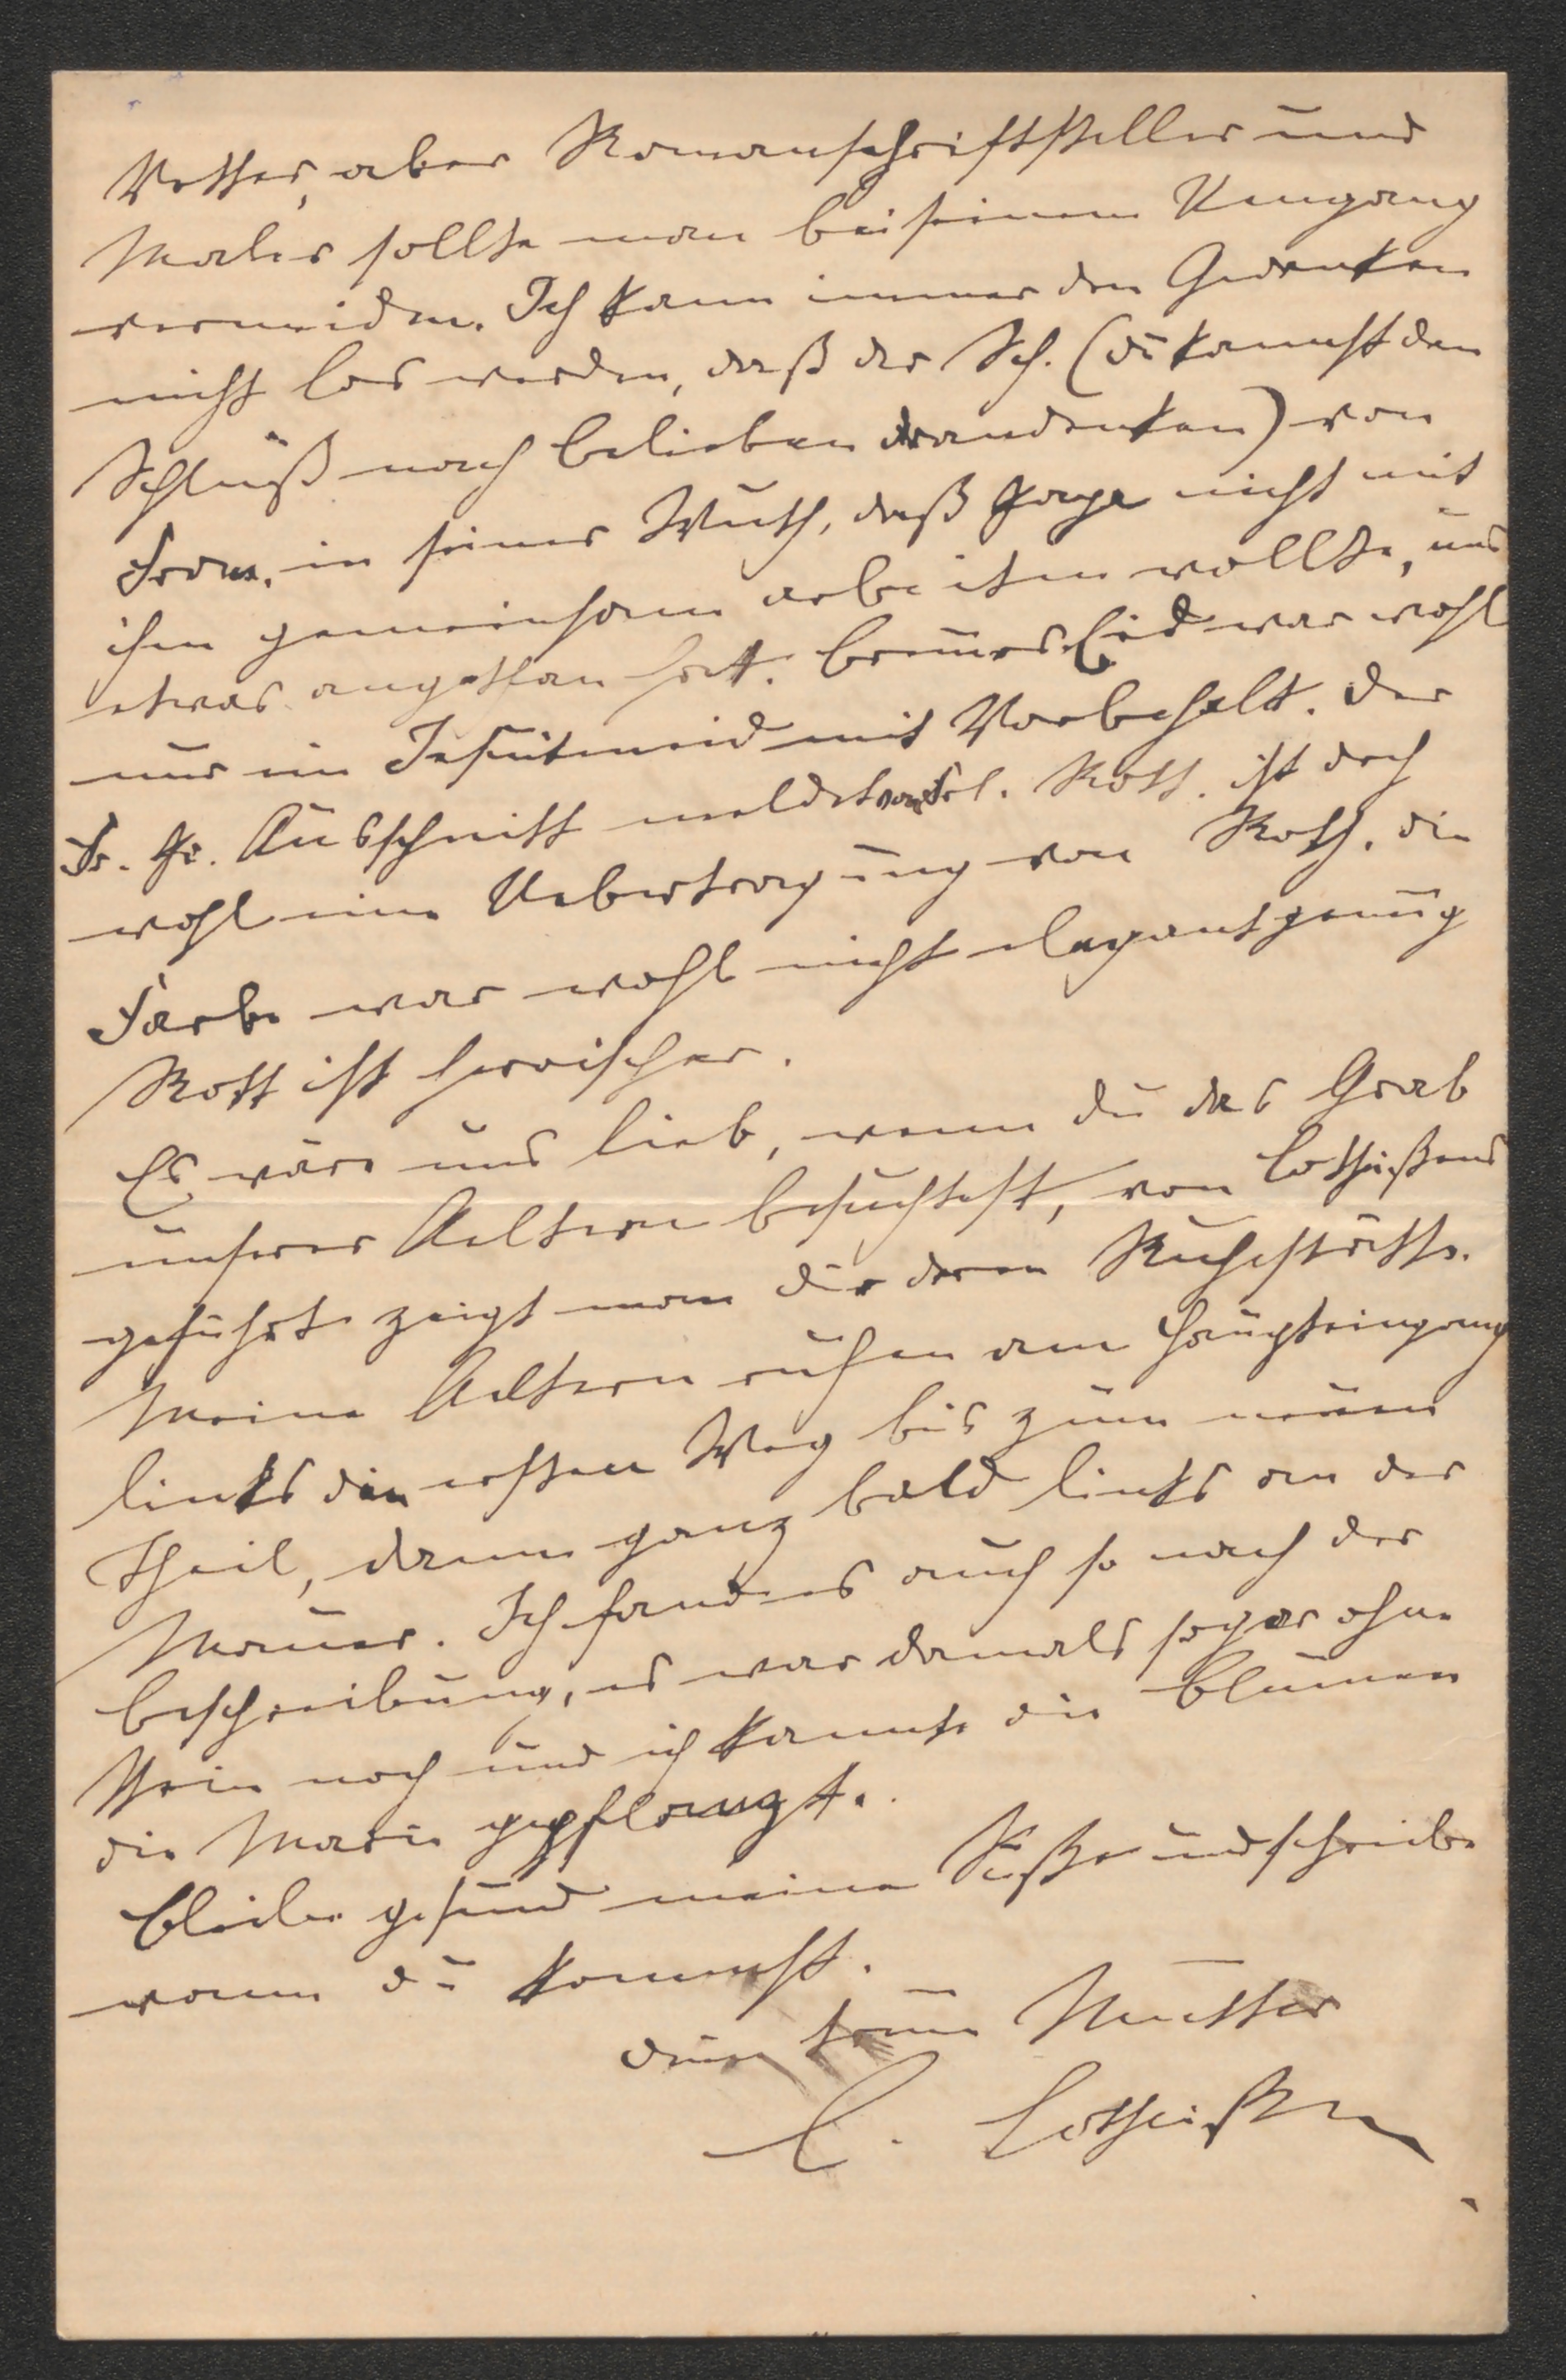 Vetter, aber Romanschriftsteller und
Maler sollte man bei seinem Umgang
vermeiden. Ich kann immer den Gedanken
nicht los werden, daß der Sch. (du kannst den
Schluß nach belieben dran denken) von
in seiner Wuth, daß nicht mit
ihm gemeinsam arbeiten wollte, uns
etwas angethan hat. Eid war wohl
nur ein Jesuiteneid mit Vorbehalt. Der
Fr. Ausschnitt meldet von Frl. Rott. ist doch
wohl eine Uebertragung von Roth, die
Farbe war wohl nicht elegant genug
Rott ist heroischer.
Es wäre uns lieb, wenn du das Grab
unserer Aeltern besuchtest, von Lotheißens
geführt zeigt man dir deren Ruhestätte.
Meine Aeltern ruhen am Haupteingang
links den ersten Weg bis zum neuen
Theil, dann ganz bald links an der
Mauer. Ich fand es auch so nach der
Beschreibung, es war damals sogar ohne
Stein noch und ich kannte die Blumen
die Marie gepflanzt.
Bleibe gesund meine und schreibe
wann du kommst.
deine treue Mutter
C. Lotheißen